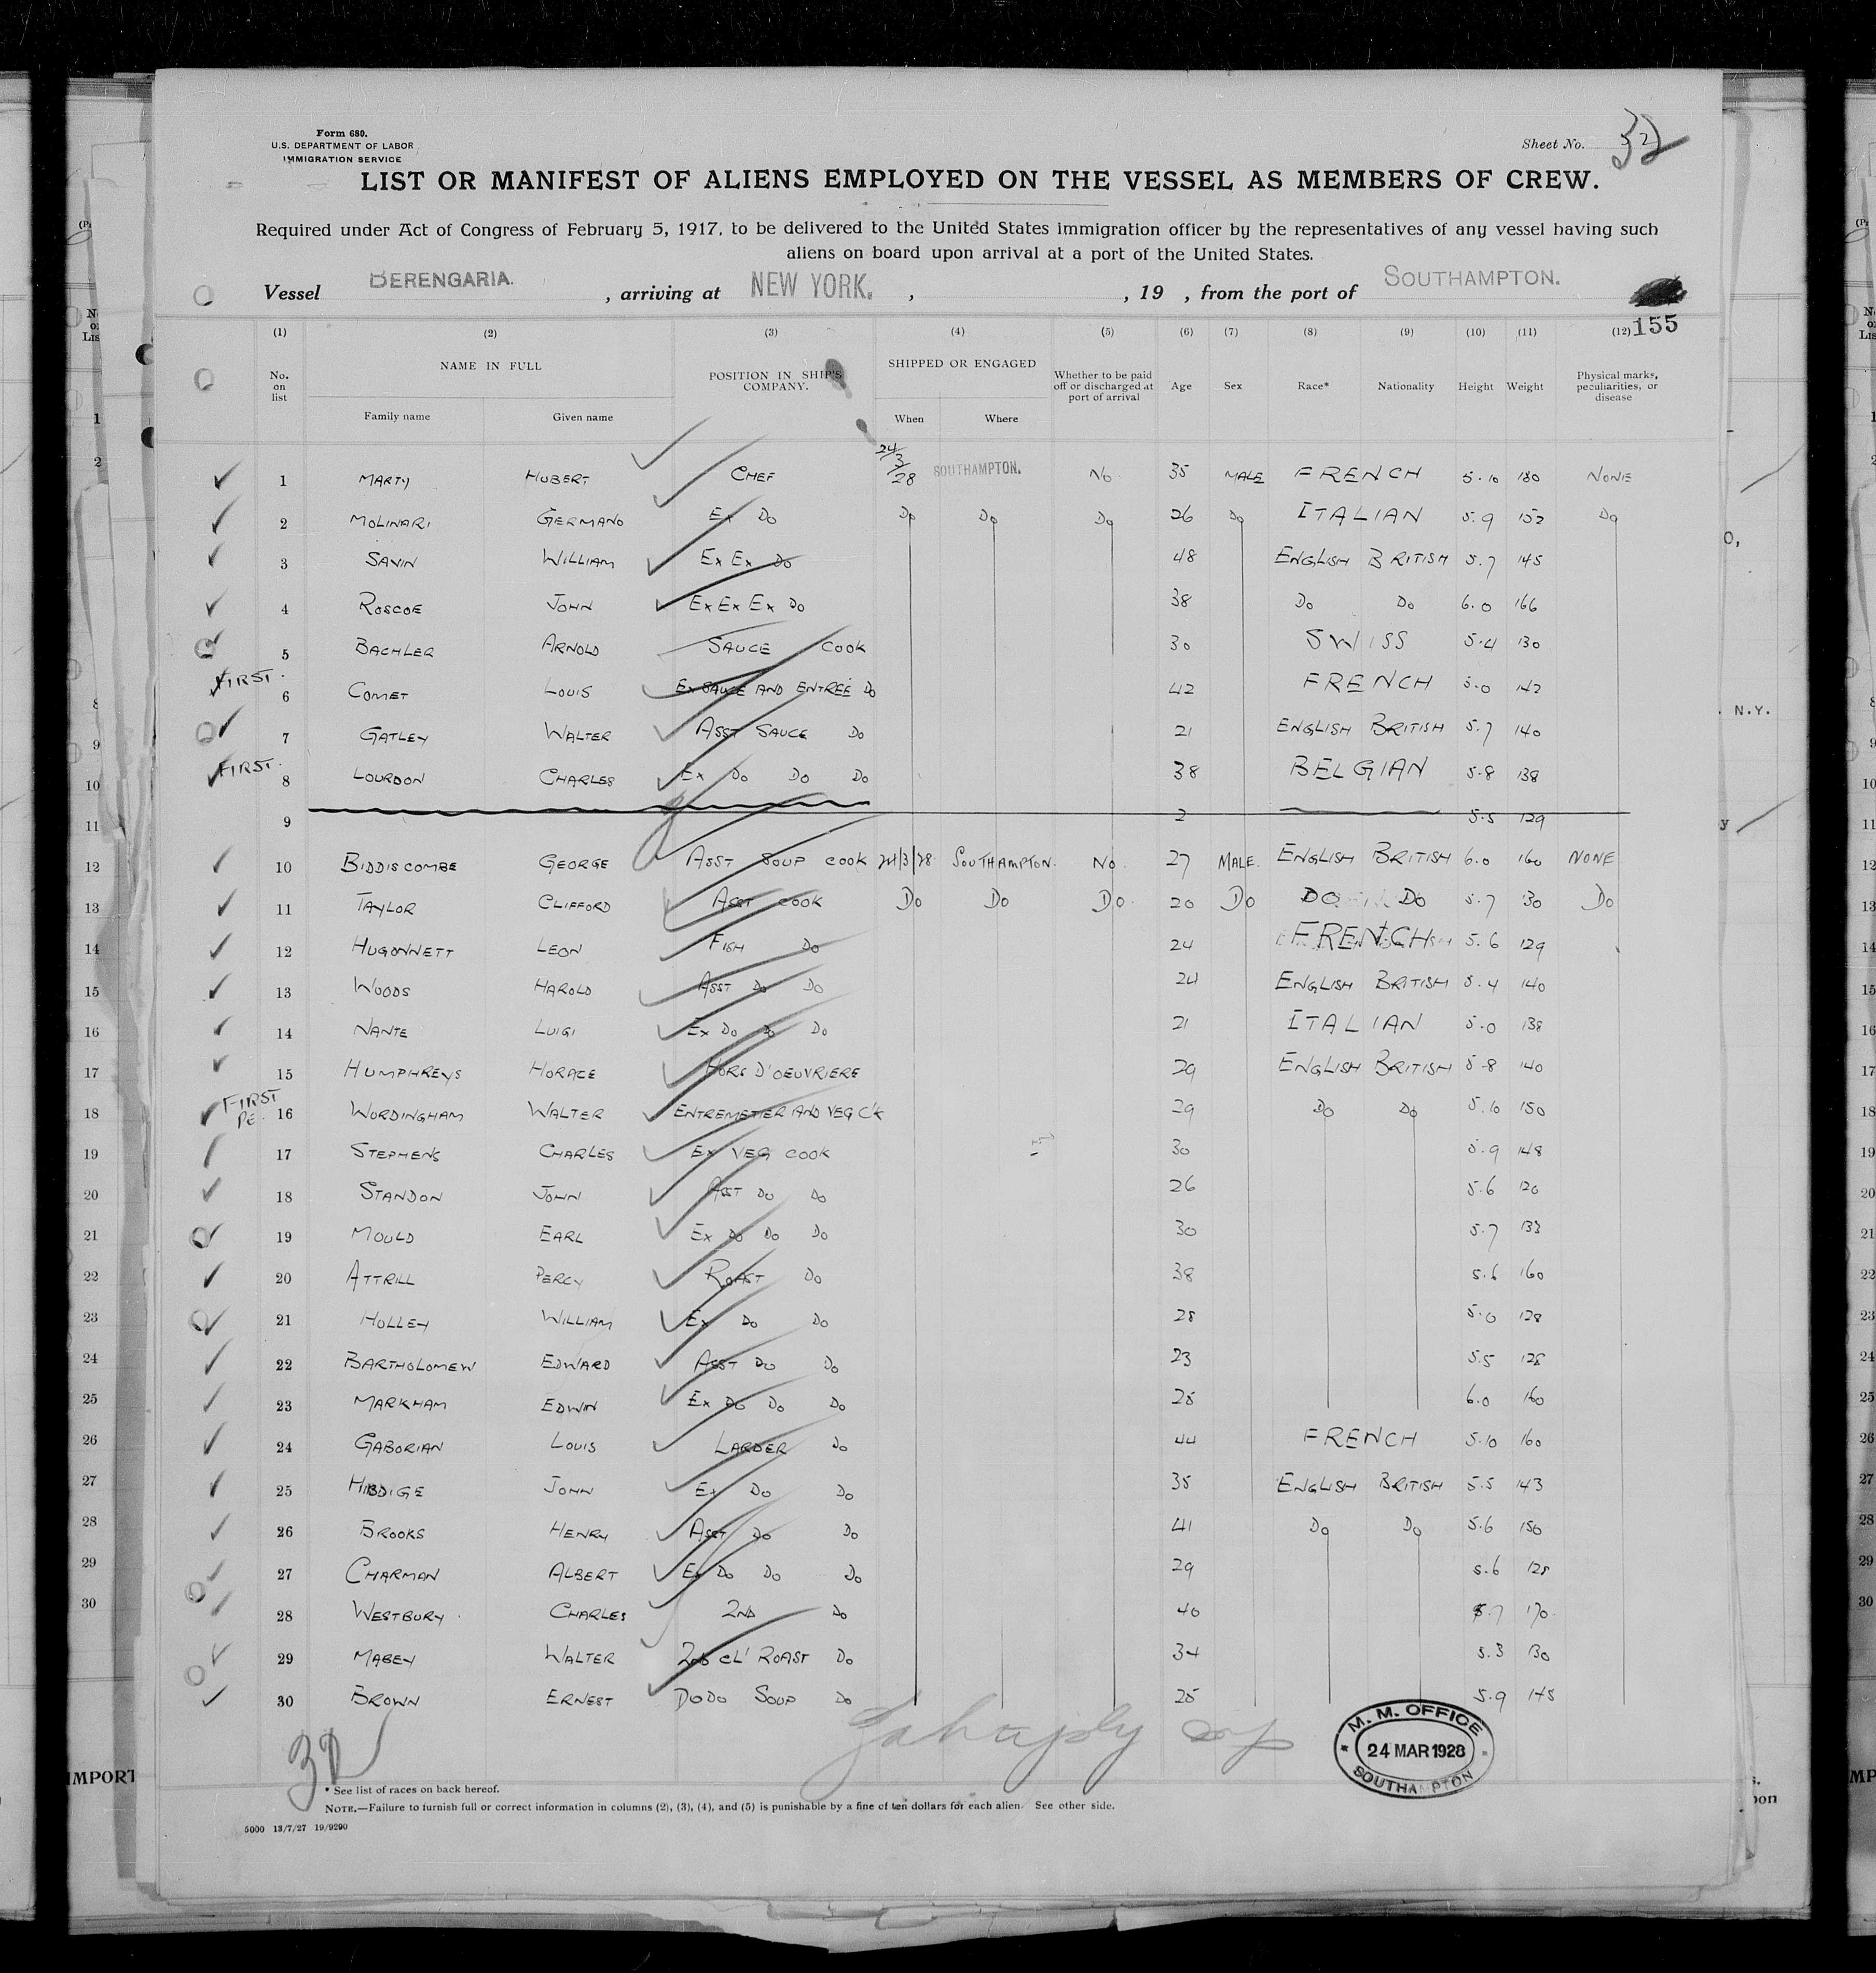 Form 680.
U.S. DEPARTMENT OF LABOR
IMMIGRATION SERVICE
Sheet No. 32
LIST OR MANIFEST OF ALIENS EMPLOYED ON THE VESSEL AS MEMBERS OF CREW.
Required under Act of Congress of February 5, 1917, to be delivered to the United States immigration officer by the representatives of any vessel having such
aliens on board upon arrival at a port of the United States.
Vessel BERENGARIA. , arriving at NEW YORK. , , 19 , from the port of SOUTHAMPTON.
155
(1) (2) (3) (4) (5) (6) (7) (8) (9) (10) (11) (12)
No. on list NAME IN FULL Family name Given name POSITION IN SHIP'S COMPANY. SHIPPED OR ENGAGED When Where Whether to be paid off or discharged at port of arrival Age Sex Race* Nationality Height Weight Physical marks, peculiarities, or disease
1 MARTY HUBERT CHEF 24/3/28 SOUTHAMPTON. No 35 MALE FRENCH 5.10 180 NONE
2 MOLINARI GERMANO Ex Do Do Do Do 26 Do ITALIAN 5.9 152 Do
3 SAVIN WILLIAM Ex Ex Do 48 ENGLISH BRITISH 5.7 145
4 ROSCOE JOHN Ex Ex Ex Do 38 Do Do 6.0 166
5 BACHLER ARNOLD SAUCE COOK 30 SWISS 5.4 130
FIRST. 6 COMET LOUIS Ex SAUCE AND ENTRÉE Do 42 FRENCH 5.0 142
7 GATLEY WALTER ASST SAUCE Do 21 ENGLISH BRITISH 5.7 140
FIRST. 8 LOURDON CHARLES Ex Do Do Do 38 BELGIAN 5.8 138
9 2 5.5 129
10 BIDDISCOMBE GEORGE ASST SOUP COOK 24/3/28 SOUTHAMPTON. No. 27 MALE. ENGLISH BRITISH 6.0 160 NONE
11 TAYLOR CLIFFORD ASST COOK Do Do Do 20 Do DO Do 5.7 130 Do
12 HUGONNETT LEON FISH Do 24 FRENCH 5.6 129
13 WOODS HAROLD ASST Do Do 24 ENGLISH BRITISH 5.4 140
14 NANTE LUIGI Ex Do Do Do 21 ITALIAN 5.0 138
15 HUMPHREYS HORACE HORS D'OEUVRIERE 29 ENGLISH BRITISH 5.8 140
FIRST 16 WORDINGHAM WALTER ENTREMETIER AND VEG C'K 29 Do Do 5.10 150
17 STEPHENS CHARLES Ex VEG COOK 30 5.9 148
18 STANDON JOHN ASST Do Do 26 5.6 120
19 MOULD EARL Ex Do Do Do 30 5.7 133
20 ATTRILL PERCY ROAST Do 38 5.6 160
21 HOLLEY WILLIAM Ex Do Do 28 5.0 128
22 BARTHOLOMEW EDWARD ASST Do Do 23 5.5 128
23 MARKHAM EDWIN Ex Do Do Do 25 6.0 160
24 GABORIAN LOUIS LARDER Do 44 FRENCH 5.10 160
25 HIBDIGE JOHN Ex Do Do 35 ENGLISH BRITISH 5.5 143
26 BROOKS HENRY ASST Do Do 41 Do Do 5.6 150
27 CHARMAN ALBERT Ex Do Do Do 29 5.6 125
28 WESTBURY CHARLES 2ND Do 40 5.7 170
29 MABEY WALTER 2ND CL' ROAST Do 34 5.3 130
30 BROWN ERNEST DO DO SOUP Do 25 5.9 145
M. M. OFFICE
24 MAR 1928
SOUTHAMPTON
* See list of races on back hereof.
NOTE.—Failure to furnish full or correct information in columns (2), (3), (4), and (5) is punishable by a fine of ten dollars for each alien. See other side.
5000 13/7/27 19/9290